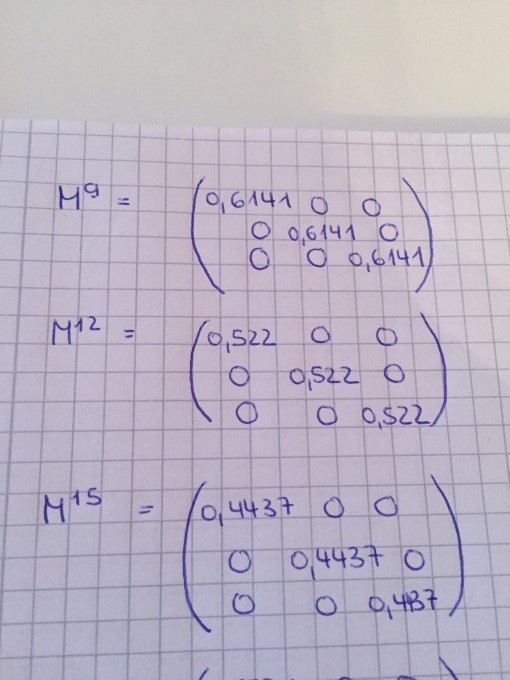 M⁹ = (0,6141 0 0
0 0,6141 0
0 0 0,6141)
M¹² = (0,522 0 0
0 0,522 0
0 0 0,522)
M¹⁵ = (0,4437 0 0
0 0,4437 0
0 0 0,437)